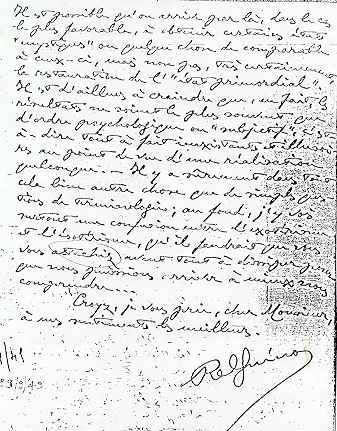 Il est possible qu'on arrive par là, dans le cas
le plus favorable, à obtenir certains états
"mystiques" ou quelque chose de comparable
à ceux-ci, mais non pas, très certainement,
la restauration de l'"état primordial".
Il est d'ailleurs à craindre que, en fait, les
résultats ne soient le plus souvent que
d'ordre psychologique ou "subjectif", c'est-
à-dire tout à fait inexistants et illusoi-
res au point de vue d'une réalisation
quelconque. — Il y a sûrement dans tout
cela bien autre chose que de simples ques-
tions de terminologie; au fond, j'y vois
surtout une confusion entre l'exotérisme
et l'ésotérisme, qu'il faudrait que vous
vous attachiez avant tout à dissiper pour
que nous puissions arriver à mieux nous
comprendre...
Croyez, je vous prie, cher Monsieur,
à mes sentiments les meilleurs.